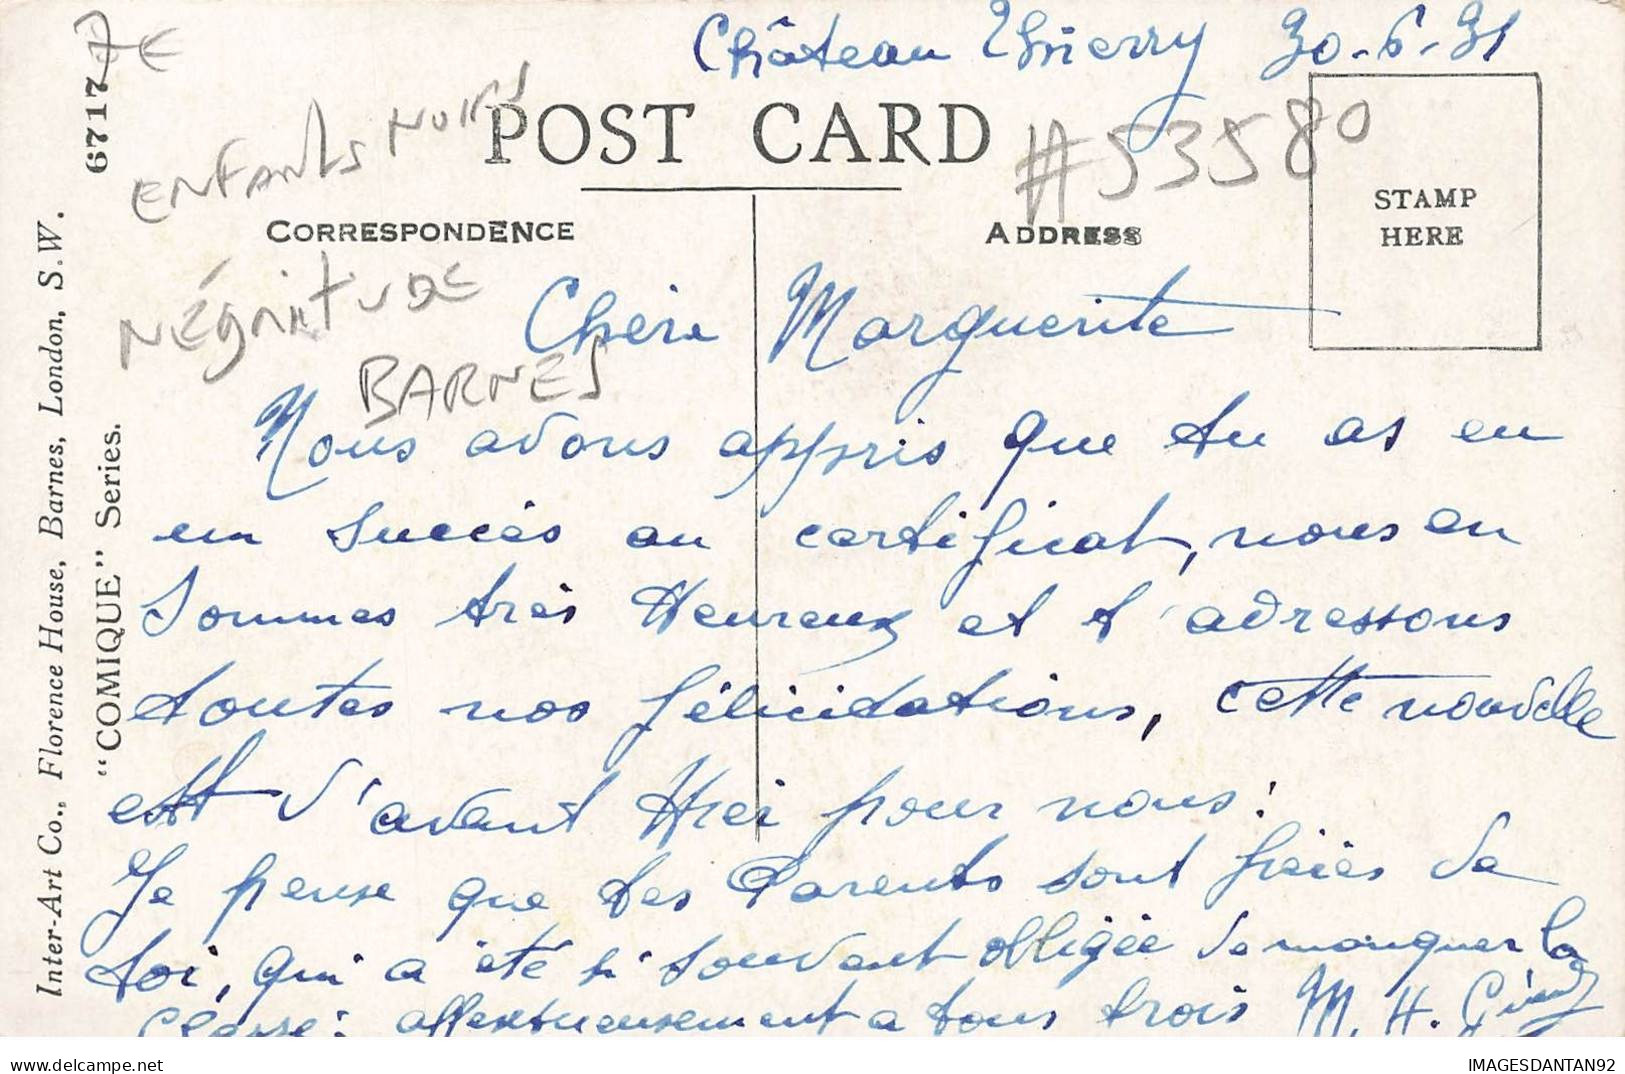 Château Thierry 30-6-31
7€
6717
ENFANTS NOIRS
POST CARD
#53580
STAMP
HERE
CORRESPONDENCE
ADDRESS
NÉGRITUDE
BARNES
Inter-Art Co., Florence House, Barnes, London, S.W.
"COMIQUE" Series.
Chère Marguerite
Nous avons appris que tu as eu
un succès au certificat, nous en
sommes très Heureux et t'adressons
toutes nos félicidations, cette nouvelle
est d'avant Hier pour nous:
Je pense que tes Parents sont fiers de
toi, qui a été si souvent obligée de manquer la
classe: affectueusement a tous trois M. H.
IMAGESDANTAN92